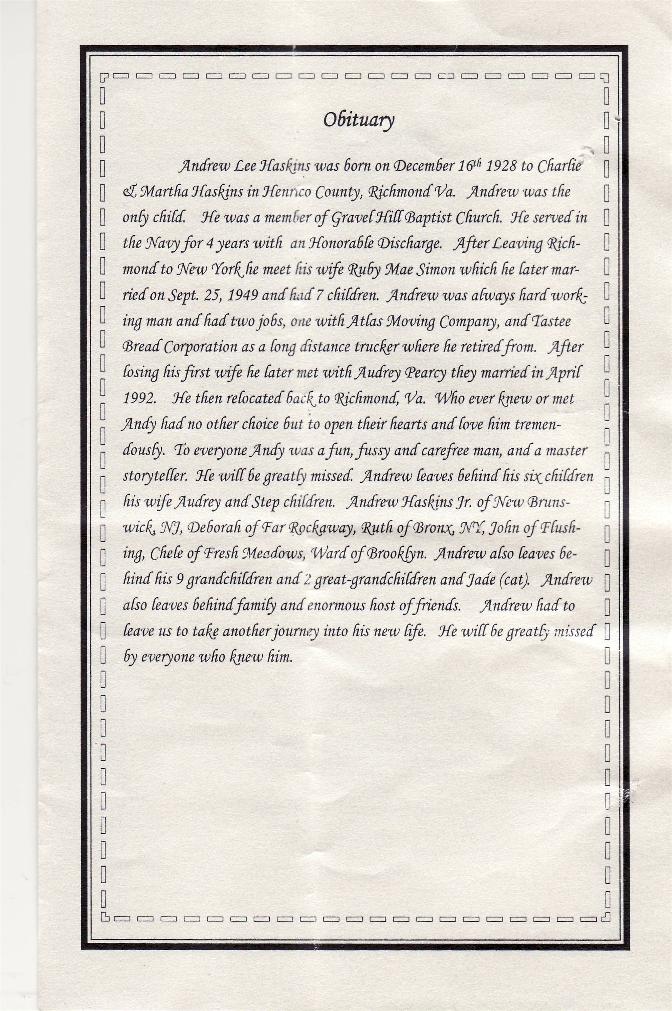 Obituary
Andrew Lee Haskins was born on December 16th 1928 to Charlie
& Martha Haskins in Henrico County, Richmond Va. Andrew was the
only child. He was a member of Gravel Hill Baptist Church. He served in
the Navy for 4 years with an Honorable Discharge. After Leaving Rich-
mond to New York he meet his wife Ruby Mae Simon which he later mar-
ried on Sept. 25, 1949 and had 7 children. Andrew was always hard work-
ing man and had two jobs, one with Atlas Moving Company, and Tastee
Bread Corporation as a long distance trucker where he retired from. After
losing his first wife he later met with Audrey Pearcy they married in April
1992. He then relocated back to Richmond, Va. Who ever knew or met
Andy had no other choice but to open their hearts and love him tremen-
dously. To everyone Andy was a fun, fussy and carefree man, and a master
storyteller. He will be greatly missed. Andrew leaves behind his six children
his wife Audrey and Step children. Andrew Haskins Jr. of New Bruns-
wick, NJ, Deborah of Far Rockaway, Ruth of Bronx, NY, John of Flush-
ing, Chele of Fresh Meadows, Ward of Brooklyn. Andrew also leaves be-
hind his 9 grandchildren and 2 great-grandchildren and Jade (cat). Andrew
also leaves behind family and enormous host of friends. Andrew had to
leave us to take another journey into his new life. He will be greatly missed
by everyone who knew him.